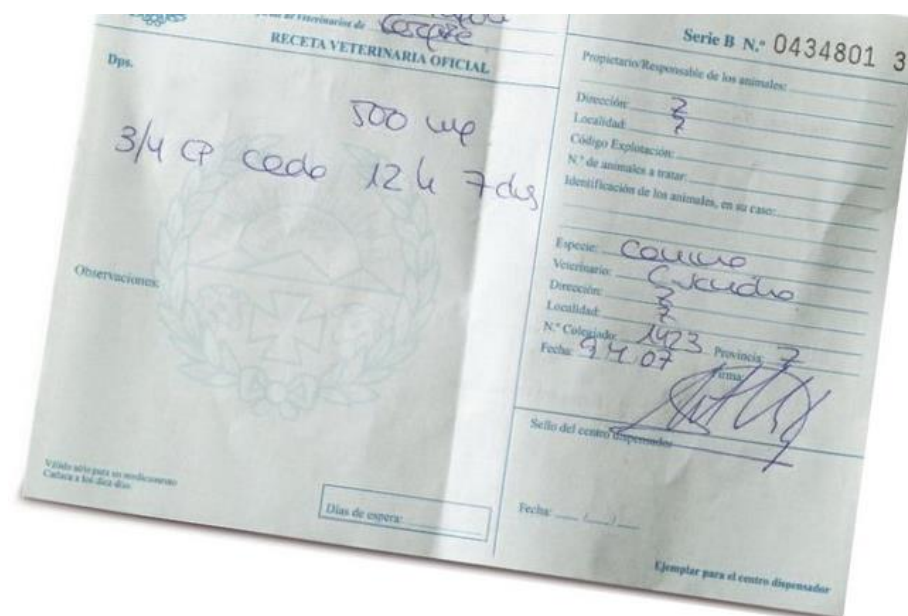 de Veterinarios de
RECETA VETERINARIA OFICIAL
Dps.
500 mg
3/4 cp cada 12 h 7 días
Observaciones:
Válido sólo para un medicamento
Caduca a los diez días
Días de espera:
Serie B N.º 0434801 3
Propietario/Responsable de los animales:
Dirección:
Localidad:
Código Explotación:
N.º de animales a tratar:
Identificación de los animales, en su caso:
Especie: Canina
Veterinario:
Dirección:
Localidad:
N.º Colegiado: 1423 Provincia:
Fecha: 9 4 07 Firma:
Sello del centro dispensador
Fecha: / /
Ejemplar para el centro dispensador